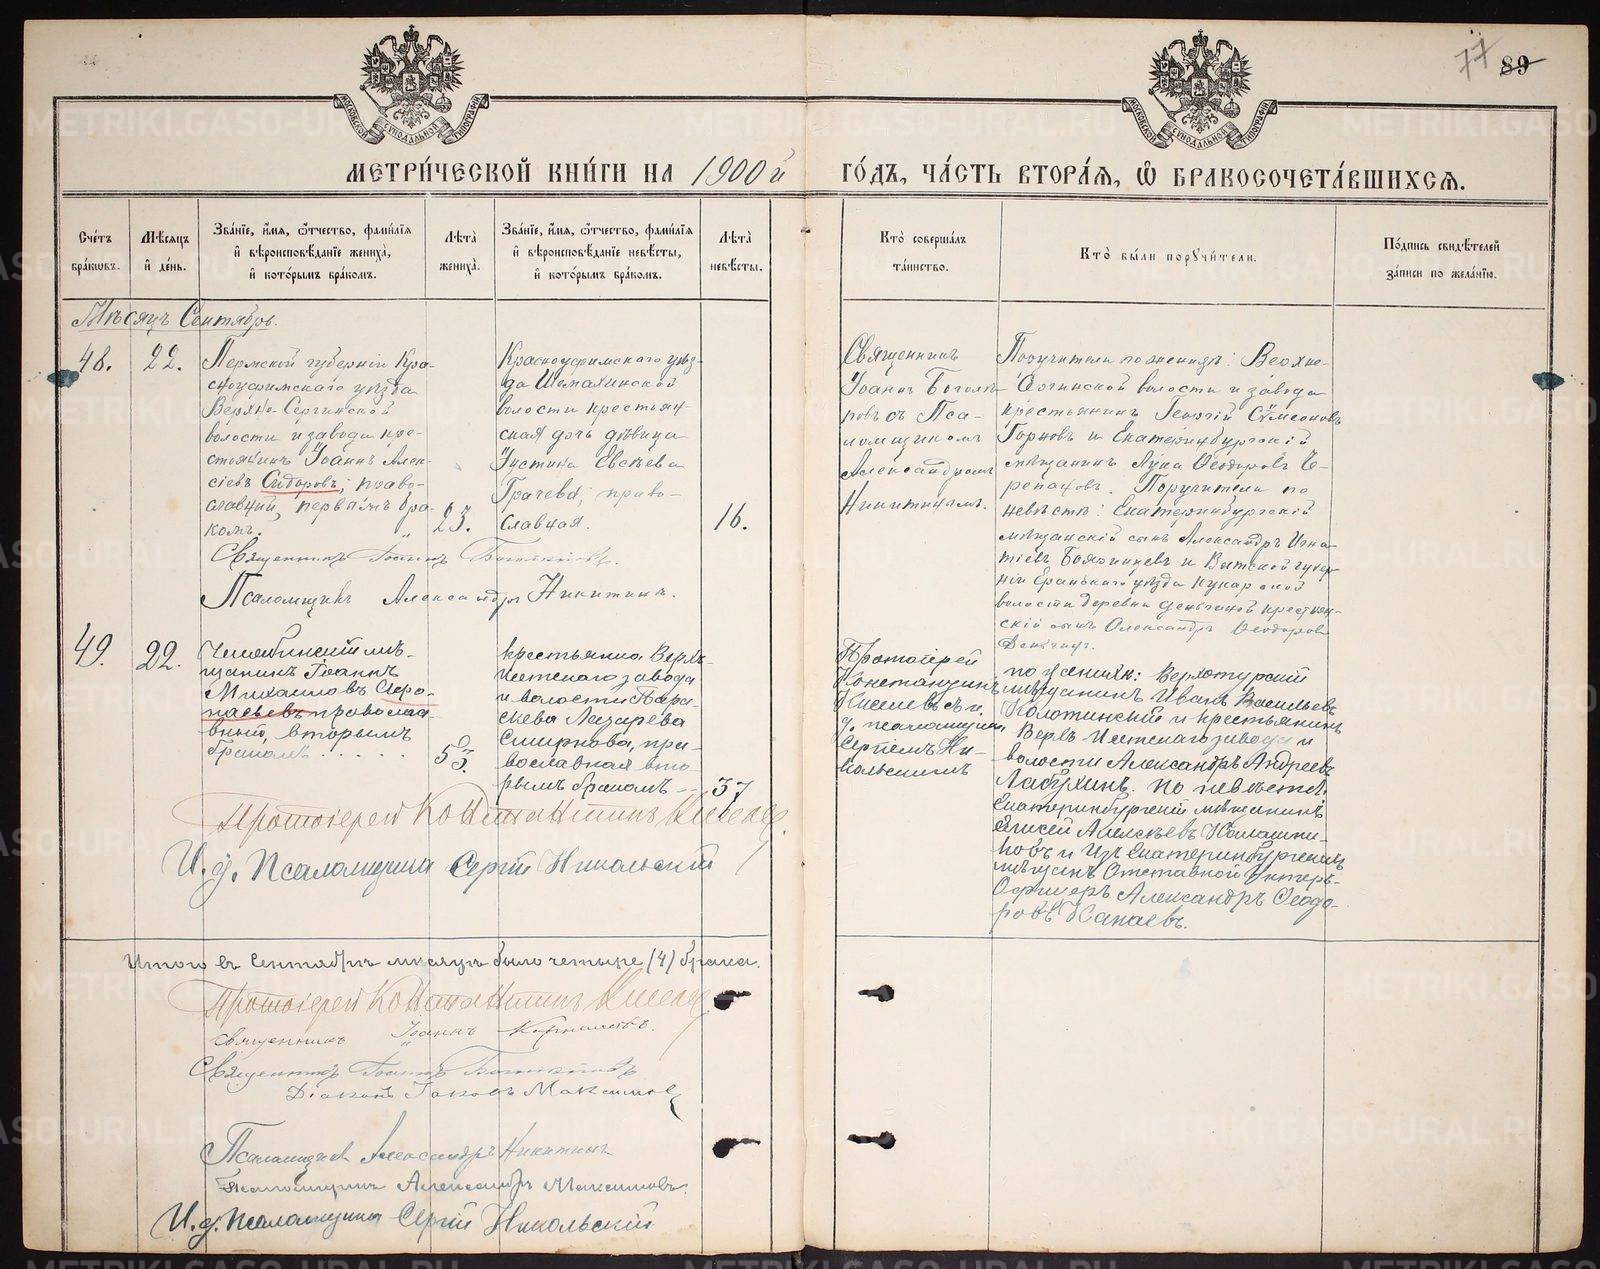 77 89
МЕТРИ́ЧЕСКОЙ КНИ́ГИ НА 1900й ГО́ДЪ, ЧА́СТЬ ВТОРА́Я, Ѡ БРАКОСОЧЕТА́ВШИХСЯ.
Сче́тъ бра́кѡвъ.
Мѣ́сяцъ и де́нь.
Зва́нїе, и́мя, ѻ́тчество, фами́лїя и вѣроисповѣ́данїе жениха̀, и кото́рымъ бра́комъ.
Лѣ́та жениха̀.
Зва́нїе, и́мя, ѻ́тчество, фами́лїя и вѣроисповѣ́данїе невѣ́сты, и кото́рымъ бра́комъ.
Лѣ́та невѣ́сты.
Кто̀ соверша́лъ та́инство.
Кто̀ бы́ли пору́чи́тели.
По́дпись свидѣ́телей за́писи по жела́нїю.
Мѣсяцъ Сентябрь.
48.
22.
Пермской губерніи Кра-
сноуфимскаго уѣзда
Верхне-Сергинской
волости и завода кре-
стьянинъ Іоаннъ Алек-
сіевъ Сидоровъ, право-
славный, первымъ бра-
комъ.
23.
Красноуфимскаго уѣз-
да Шемахинской
волости крестьян-
ская дочь дѣвица
Іустина Евсѣева
Грачева, право-
славная.
16.
Священникъ
Іоаннъ Боголѣ-
повъ съ Пса-
ломщикомъ
Александромъ
Никитинымъ.
Поручители по женихѣ: Верхне-
Сергинской волости и завода
крестьянинъ Георгій Сѵмеоновъ
Горновъ и Екатеринбургскій
мѣщанинъ Лука Ѳеодоровъ Че-
репановъ. Поручители по
невѣстѣ: Екатеринбургскій
мѣщанскій сынъ Александръ Игна-
тіевъ и Вятской губер-
ніи Яранскаго уѣзда Кукарской
волости деревни крестьян-
скій сынъ Александръ Ѳеодоровъ
Священникъ Іоаннъ Боголѣповъ.
Псаломщикъ Александръ Никитинъ.
49.
22.
Челябинскій мѣ-
щанинъ Іоаннъ
Михаиловъ
православ-
ный, вторымъ
бракомъ. . . . . .
53.
крестьянка Верхъ-
Исетскаго завода
и волости Пара-
скева Лазарева
Смирнова, пра-
вославная вто-
рымъ бракомъ --
37
Протоіерей
Константинъ
Киселевъ съ и.
д. псаломщика
Сергіемъ Ни-
кольскимъ
по женихѣ: Верхотурскій
мѣщанинъ Иванъ Васильевъ
Колотинскій и крестьянинъ
Верхъ Исетскаго завода и
волости Александръ Андреевъ
Лабухинъ. по невѣстѣ:
Екатеринбургскій мѣщанинъ
Елисей Алексѣевъ Калашни-
ковъ и изъ Екатеринбургскихъ
мѣщанъ Отставной Унтеръ-
Офицеръ Александръ Ѳеодо-
ровъ Канаевъ.
Протоіерей Константинъ Киселевъ.
И. д. Псаломщика Сергій Никольскій
Итого въ Сентябрѣ мѣсяцѣ было четыре (4) брака.
Протоіерей Константинъ Киселевъ
Священникъ Іоаннъ Корниловъ.
Священникъ Іоаннъ Боголѣповъ
Діаконъ Іаковъ Максимовъ
Псаломщикъ Александръ Никитинъ
Псаломщикъ Александръ Максимовъ.
И. д. псаломщика Сергій Никольскій